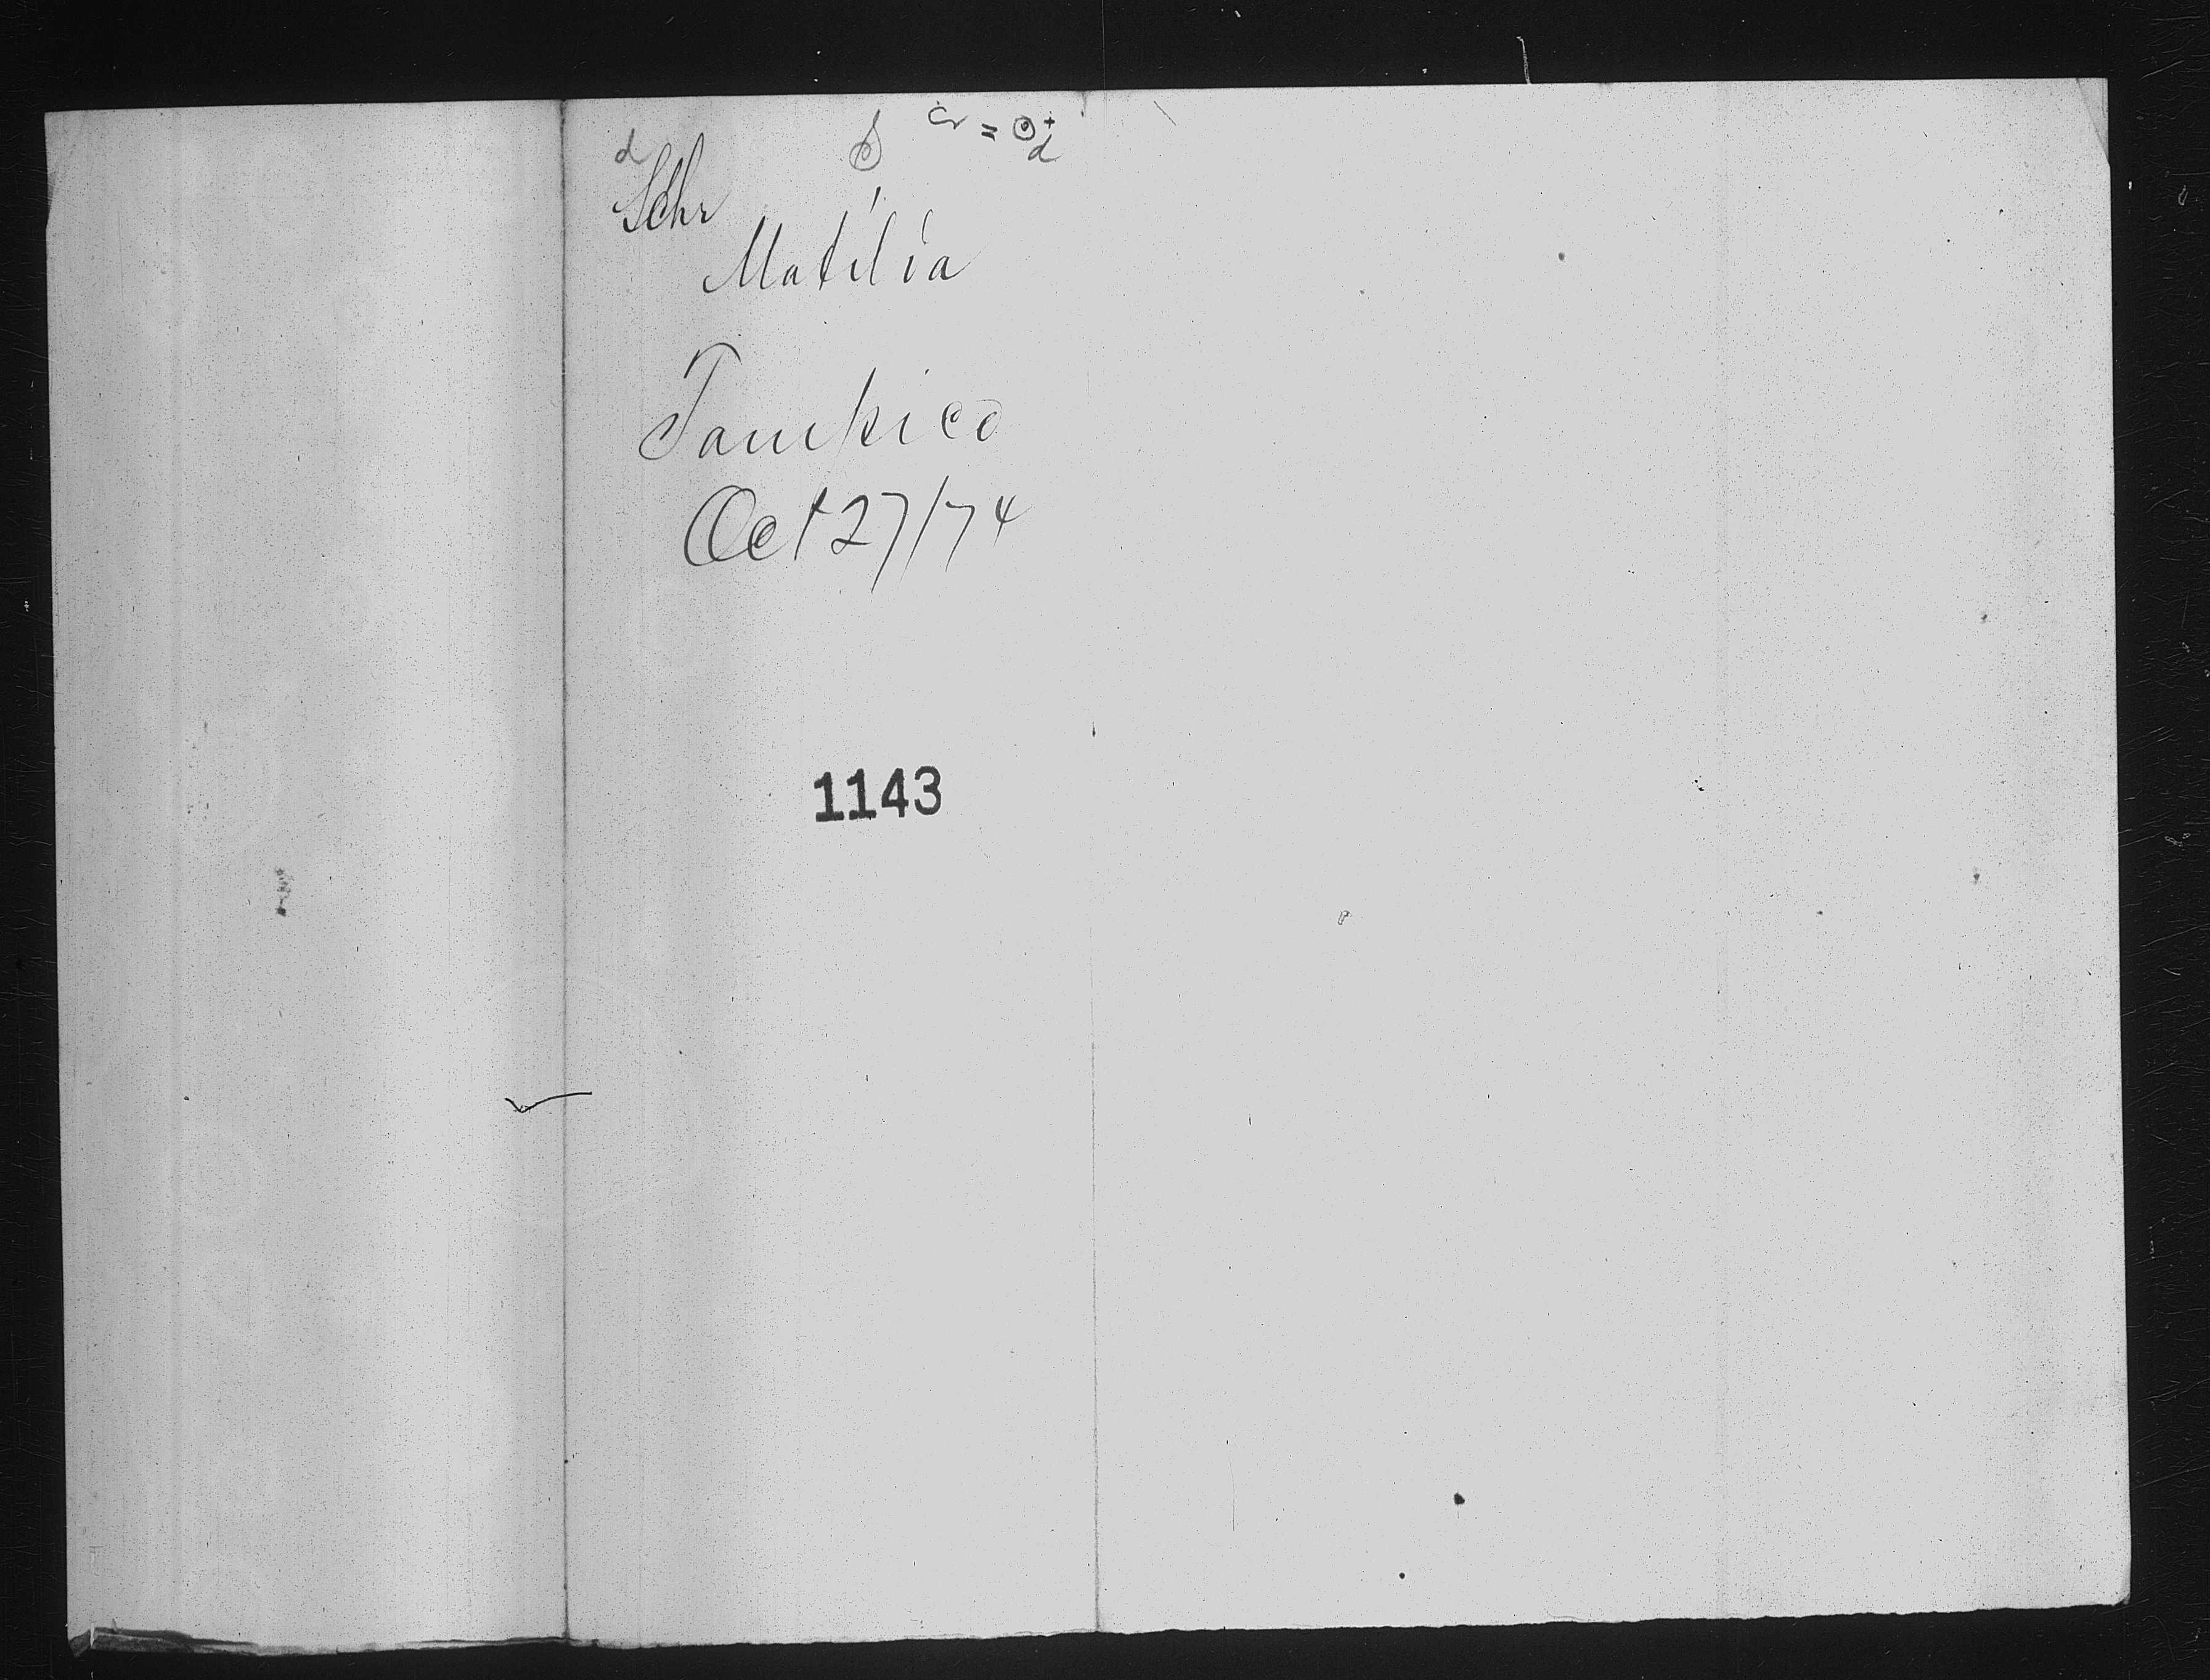 Schr
Matilia
Tampico
Oct 27/74
1143